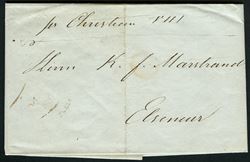 pr Christian VIII
Herrn K. J. Marstrand
Elseneur